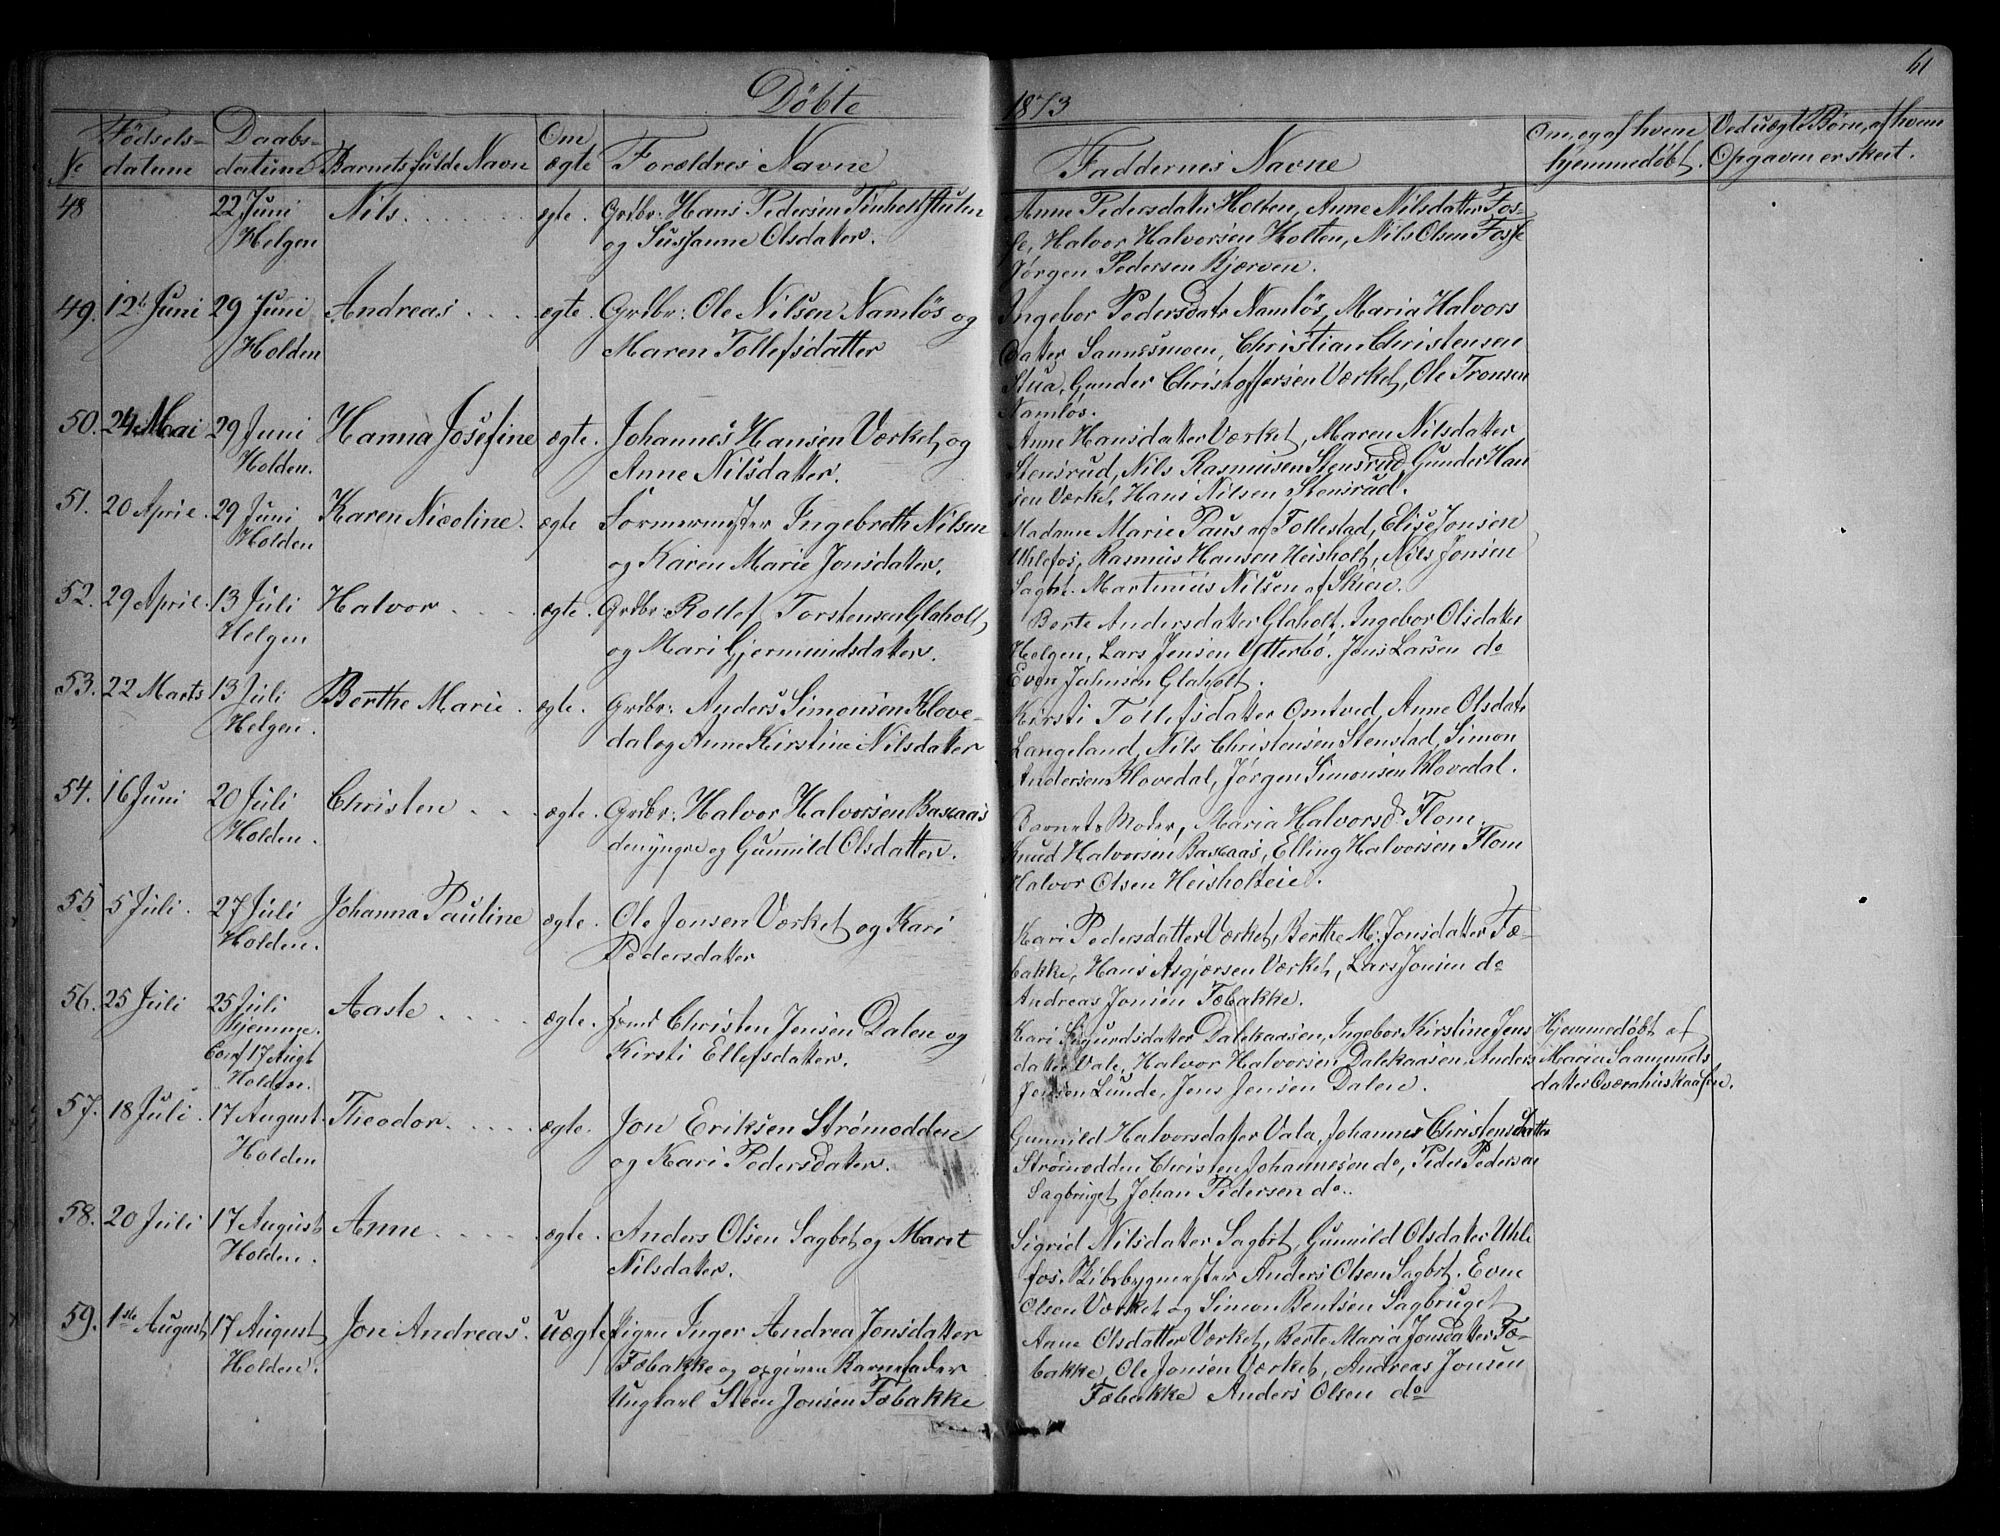 Döbte 1873
61
No
Fødsels-
datum
Daabs-
datum
Barnets fulde Navn
Om
ægte
Forældres Navne
Faddernes Navne
Om, og af hvem
hjemmedøbt.
Ved uægte Børn, af hvem
Opgaven er skeet.
48
22 Juni
Helgen
Nils
ægte.
Grdbr: Hans Pedersen
og Sussanne Olsdatter.
Anne Pedersdatter Holten, Anne Nilsdatter Fos-
se, Halvor Halvorsen Holten, Nils Olsen Fosse
Jørgen Pedersen Bjerven.
49. 12te Juni
29 Juni
Holden
Andreas
ægte.
Grdbr: Ole Nilsen Namløs og
Maren Tollefsdatter
Ingebor Pedersdatr Namløs, Maria Halvors
datter Saunesmoen, Christian Christensen
Stua, Gunder Christoffersen Værket, Ole Tronsen
Namløs.
50. 24 Mai
29 Juni
Holden.
Hanna Josefine
ægte.
Johannes Hansen Værket, og
Anne Nilsdatter.
Anne Hansdatter Værket, Maren Nilsdatter
Stensrud, Nils Rasmusen Stensrud, Gunder Han
sen Værket, Hans Nilsen Stensrud.
51. 20 April.
29 Juni
Holden
Karen Nicoline.
ægte
Formermester Ingebreth Nilsen
og Karen Marie Jonsdatter.
Madame Marie Paus af Tollestad, Elise Jonsen
Uhlefos, Rasmus Hansen Heisholt, Nils Jensen
Sagbr. Martinius Nilsen af Skien.
52. 29 April.
13 Juli
Helgen
Halvor
ægte.
Grdbr: Rollef Torstensen Glaholt,
og Mari Gjermundsdatter.
Berte Andersdatter Glaholt. Ingebor Olsdatter
Helgen, Lars Jensen Ytterbö. Jens Larsen do
Even Jahnsen Glaholt.
53. 22 Marts
13 Juli
Helgen.
Berthe Marie.
ægte.
Grdbr: Anders Simonsen Klove-
dal og Anne Kirstine Nilsdatter
Kirsti Tollefsdatter Omtved, Anne Olsdatr
Langeland, Nils Christensen Stenstad, Simon
Andersen Klovedal, Jørgen Simonsen Klovedal.
54. 16 Juni
20 Juli
Holden.
Christen
ægte.
Grdbr: Halvor Halvorsen Baskaas
den yngre og Gunnild Olsdatter.
Barnets Moder, Maria Halvorsd. Flom.
Knud Halvorsen Baskaas, Elling Halvorsen Flom
Halvor Olsen Heisholteie.
55 5 Juli.
27 Juli
Holden.
Johanna Pauline
ægte.
Ole Jonsen Værket og Kari
Pedersdatter
Kari Pedersdatter Værket, Berthe M: Jonsdatter Fæ-
bakke, Hans Asgjersen Værket, Lars Jonsen do
Andreas Jonsen Fæbakke.
56. 25 Juli
25 Juli
Hjemme.
Conf 17 Augt
Holden.
Aaste
ægte.
Christen Jensen Dalen og
Kirsti Ellefsdatter.
Kari Sigurdsdatter Dalekaasen, Ingebor Kirstine Jens
datter Vale, Halvor Halvorsen Dalekaasen, Anders
Jensen Lunde, Jens Jensen Dalen.
Hjemmedøbt af
Maria Saamunds
datter
57. 18 Juli.
17 August
Holden
Theodor
ægte.
Jon Eriksen Strømodden
og Kari Pedersdatter.
Gunnild Halvorsdatter Vala, Johanne Christensdatter
Strømodden Christen Johannesen do, Peder Pedersen
Sagbruget Johan Pedersen do.
58. 20 Juli
17 August
Holden.
Anne
ægte.
Anders Olsen Sagbrt, og Marit
Nilsdatter.
Sigrid Nilsdatter Sagbrt, Gunnild Olsdatter Uhle
fos. Skibsbygmester Anders Olsen Sagbrt. Even
Olsen Værket og Simon Bentsen Sagbruget
59. 1ste August
17 August
Holden.
Jon Andreas.
uægte
Pigen Inger Andrea Jonsdatter
Fæbakke og opgiven Barnefader
Ungkarl Steen Jonsen Fæbakke
Anne Olsdatter Værket, Berte Maria Jonsdatter Fæ-
bakke, Ole Jonsen Værket, Andreas Jonsen
Fæbakke Anders Olsen do